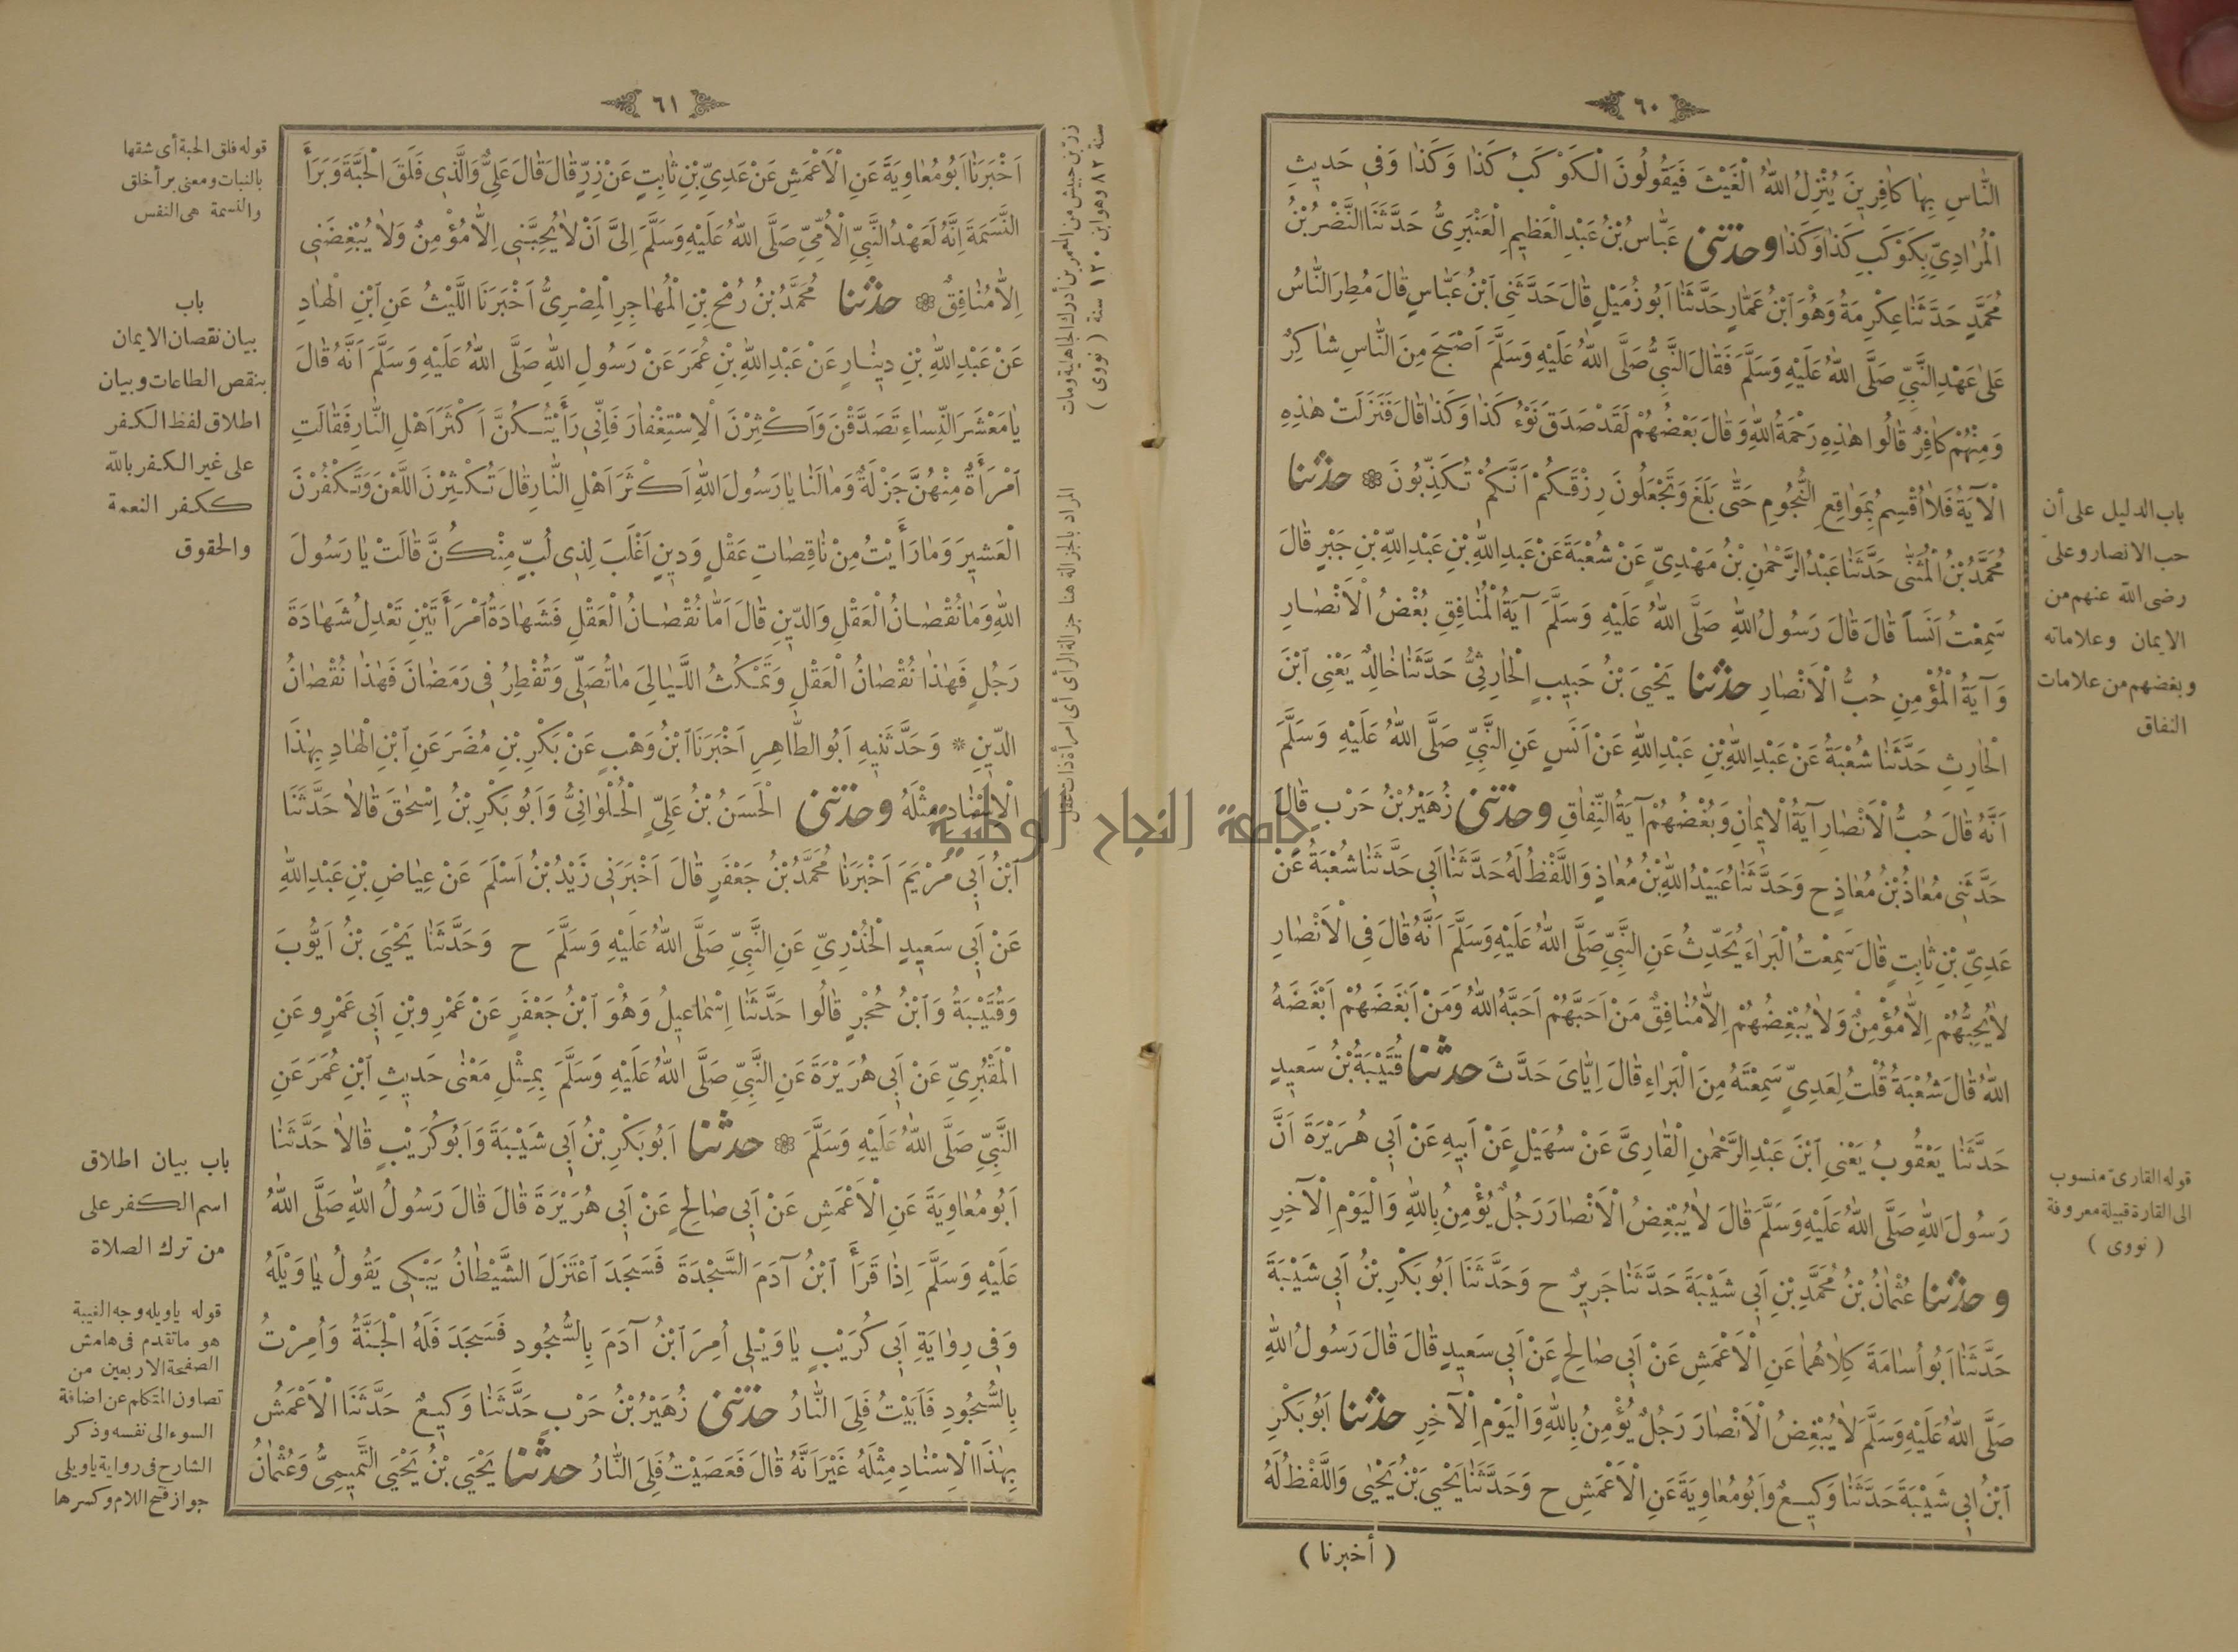 ٦٠
النَّاسِ بِهَا كَافِرِينَ يُنْزِلُ اللّٰهُ الْغَيْثَ فَيَقُولُونَ الْكَوْكَبُ كَذَا وَكَذَا وَفِي حَدِيثِ
الْمُرَادِيِّ بِكَوْكَبِ كَذَا وَكَذَا وحدثنى عَبَّاسُ بْنُ عَبْدِ الْعَظِيمِ الْعَنْبَرِيُّ حَدَّثَنَا النَّضْرُ بْنُ
مُحَمَّدٍ حَدَّثَنَا عِكْرِمَةُ وَهُوَ ابْنُ عَمَّارٍ حَدَّثَنَا أَبُو زُمَيْلٍ قَالَ حَدَّثَنِي ابْنُ عَبَّاسٍ قَالَ مُطِرَ النَّاسُ
عَلَى عَهْدِ النَّبِيِّ صَلَّى اللّٰهُ عَلَيْهِ وَسَلَّمَ فَقَالَ النَّبِيُّ صَلَّى اللّٰهُ عَلَيْهِ وَسَلَّمَ أَصْبَحَ مِنَ النَّاسِ شَاكِرٌ
وَمِنْهُمْ كَافِرٌ قَالُوا هٰذِهِ رَحْمَةُ اللّٰهِ وَقَالَ بَعْضُهُمْ لَقَدْ صَدَقَ نَوْءُ كَذَا وَكَذَا قَالَ فَنَزَلَتْ هٰذِهِ
الْآيَةُ فَلَا أُقْسِمُ بِمَوَاقِعِ النُّجُومِ حَتَّى بَلَغَ وَتَجْعَلُونَ رِزْقَكُمْ أَنَّكُمْ تُكَذِّبُونَ ❁ حدثنا
مُحَمَّدُ بْنُ الْمُثَنَّى حَدَّثَنَا عَبْدُ الرَّحْمٰنِ بْنُ مَهْدِيٍّ عَنْ شُعْبَةَ عَنْ عَبْدِ اللّٰهِ بْنِ عَبْدِ اللّٰهِ بْنِ جَبْرٍ قَالَ
سَمِعْتُ أَنَساً قَالَ قَالَ رَسُولُ اللّٰهِ صَلَّى اللّٰهُ عَلَيْهِ وَسَلَّمَ آيَةُ الْمُنَافِقِ بُغْضُ الْأَنْصَارِ
وَآيَةُ الْمُؤْمِنِ حُبُّ الْأَنْصَارِ حدثنا يَحْيَى بْنُ حَبِيبٍ الْحَارِثِيُّ حَدَّثَنَا خَالِدٌ يَعْنِي ابْنَ
الْحَارِثِ حَدَّثَنَا شُعْبَةُ عَنْ عَبْدِ اللّٰهِ بْنِ عَبْدِ اللّٰهِ عَنْ أَنَسٍ عَنِ النَّبِيِّ صَلَّى اللّٰهُ عَلَيْهِ وَسَلَّمَ
أَنَّهُ قَالَ حُبُّ الْأَنْصَارِ آيَةُ الْإِيمَانِ وَبُغْضُهُمْ آيَةُ النِّفَاقِ وحدثنى زُهَيْرُ بْنُ حَرْبٍ قَالَ
حَدَّثَنِي مُعَاذُ بْنُ مُعَاذٍ ح وَحَدَّثَنَا عُبَيْدُ اللّٰهِ بْنُ مُعَاذٍ وَاللَّفْظُ لَهُ حَدَّثَنَا أَبِي حَدَّثَنَا شُعْبَةُ عَنْ
عَدِيِّ بْنِ ثَابِتٍ قَالَ سَمِعْتُ الْبَرَاءَ يُحَدِّثُ عَنِ النَّبِيِّ صَلَّى اللّٰهُ عَلَيْهِ وَسَلَّمَ أَنَّهُ قَالَ فِي الْأَنْصَارِ
لَا يُحِبُّهُمْ إِلَّا مُؤْمِنٌ وَلَا يُبْغِضُهُمْ إِلَّا مُنَافِقٌ مَنْ أَحَبَّهُمْ أَحَبَّهُ اللّٰهُ وَمَنْ أَبْغَضَهُمْ أَبْغَضَهُ
اللّٰهُ قَالَ شُعْبَةُ قُلْتُ لِعَدِيٍّ سَمِعْتَهُ مِنَ الْبَرَاءِ قَالَ إِيَّايَ حَدَّثَ حدثنا قُتَيْبَةُ بْنُ سَعِيدٍ
حَدَّثَنَا يَعْقُوبُ يَعْنِي ابْنَ عَبْدِ الرَّحْمٰنِ الْقَارِيَّ عَنْ سُهَيْلٍ عَنْ أَبِيهِ عَنْ أَبِي هُرَيْرَةَ أَنَّ
رَسُولَ اللّٰهِ صَلَّى اللّٰهُ عَلَيْهِ وَسَلَّمَ قَالَ لَا يُبْغِضُ الْأَنْصَارَ رَجُلٌ يُؤْمِنُ بِاللّٰهِ وَالْيَوْمِ الْآخِرِ
وحدثنا عُثْمَانُ بْنُ مُحَمَّدِ بْنِ أَبِي شَيْبَةَ حَدَّثَنَا جَرِيرٌ ح وَحَدَّثَنَا أَبُو بَكْرِ بْنُ أَبِي شَيْبَةَ
حَدَّثَنَا أَبُو أُسَامَةَ كِلَاهُمَا عَنِ الْأَعْمَشِ عَنْ أَبِي صَالِحٍ عَنْ أَبِي سَعِيدٍ قَالَ قَالَ رَسُولُ اللّٰهِ
صَلَّى اللّٰهُ عَلَيْهِ وَسَلَّمَ لَا يُبْغِضُ الْأَنْصَارَ رَجُلٌ يُؤْمِنُ بِاللّٰهِ وَالْيَوْمِ الْآخِرِ حدثنا أَبُو بَكْرِ
ابْنُ أَبِي شَيْبَةَ حَدَّثَنَا وَكِيعٌ وَأَبُو مُعَاوِيَةَ عَنِ الْأَعْمَشِ ح وَحَدَّثَنَا يَحْيَى بْنُ يَحْيَى وَاللَّفْظُ لَهُ
( أخبرنا )
باب الدليل على أن
حب الانصار وعلىّ
رضى الله عنهم من
الايمان وعلاماته
وبغضهم من علامات
النفاق
قوله القارىّ منسوب
الى القارة قبيلة معروفة
( نووى )
٦١
أَخْبَرَنَا أَبُو مُعَاوِيَةَ عَنِ الْأَعْمَشِ عَنْ عَدِيِّ بْنِ ثَابِتٍ عَنْ زِرٍّ قَالَ قَالَ عَلِيٌّ وَالَّذِي فَلَقَ الْحَبَّةَ وَبَرَأَ
النَّسَمَةَ إِنَّهُ لَعَهْدُ النَّبِيِّ الْأُمِّيِّ صَلَّى اللّٰهُ عَلَيْهِ وَسَلَّمَ إِلَيَّ أَنْ لَا يُحِبَّنِي إِلَّا مُؤْمِنٌ وَلَا يُبْغِضَنِي
إِلَّا مُنَافِقٌ ❁ حدثنا مُحَمَّدُ بْنُ رُمْحِ بْنِ الْمُهَاجِرِ الْمِصْرِيُّ أَخْبَرَنَا اللَّيْثُ عَنِ ابْنِ الْهَادِ
عَنْ عَبْدِ اللّٰهِ بْنِ دِينَارٍ عَنْ عَبْدِ اللّٰهِ بْنِ عُمَرَ عَنْ رَسُولِ اللّٰهِ صَلَّى اللّٰهُ عَلَيْهِ وَسَلَّمَ أَنَّهُ قَالَ
يَا مَعْشَرَ النِّسَاءِ تَصَدَّقْنَ وَأَكْثِرْنَ الْاِسْتِغْفَارَ فَإِنِّي رَأَيْتُكُنَّ أَكْثَرَ أَهْلِ النَّارِ فَقَالَتِ
امْرَأَةٌ مِنْهُنَّ جَزْلَةٌ وَمَا لَنَا يَا رَسُولَ اللّٰهِ أَكْثَرَ أَهْلِ النَّارِ قَالَ تُكْثِرْنَ اللَّعْنَ وَتَكْفُرْنَ
الْعَشِيرَ وَمَا رَأَيْتُ مِنْ نَاقِصَاتِ عَقْلٍ وَدِينٍ أَغْلَبَ لِذِي لُبٍّ مِنْكُنَّ قَالَتْ يَا رَسُولَ
اللّٰهِ وَمَا نُقْصَانُ الْعَقْلِ وَالدِّينِ قَالَ أَمَّا نُقْصَانُ الْعَقْلِ فَشَهَادَةُ امْرَأَتَيْنِ تَعْدِلُ شَهَادَةَ
رَجُلٍ فَهٰذَا نُقْصَانُ الْعَقْلِ وَتَمْكُثُ اللَّيَالِيَ مَا تُصَلِّي وَتُفْطِرُ فِي رَمَضَانَ فَهٰذَا نُقْصَانُ
الدِّينِ * وَحَدَّثَنِيهِ أَبُو الطَّاهِرِ أَخْبَرَنَا ابْنُ وَهْبٍ عَنْ بَكْرِ بْنِ مُضَرَ عَنِ ابْنِ الْهَادِ بِهٰذَا
الْإِسْنَادِ مِثْلَهُ وحدثنى الْحَسَنُ بْنُ عَلِيٍّ الْحُلْوَانِيُّ وَأَبُو بَكْرِ بْنُ إِسْحٰقَ قَالَا حَدَّثَنَا
ابْنُ أَبِي مَرْيَمَ أَخْبَرَنَا مُحَمَّدُ بْنُ جَعْفَرٍ قَالَ أَخْبَرَنِي زَيْدُ بْنُ أَسْلَمَ عَنْ عِيَاضِ بْنِ عَبْدِ اللّٰهِ
عَنْ أَبِي سَعِيدٍ الْخُدْرِيِّ عَنِ النَّبِيِّ صَلَّى اللّٰهُ عَلَيْهِ وَسَلَّمَ ح وَحَدَّثَنَا يَحْيَى بْنُ أَيُّوبَ
وَقُتَيْبَةُ وَابْنُ حُجْرٍ قَالُوا حَدَّثَنَا إِسْمَاعِيلُ وَهُوَ ابْنُ جَعْفَرٍ عَنْ عَمْرِو بْنِ أَبِي عَمْرٍو عَنِ
الْمَقْبُرِيِّ عَنْ أَبِي هُرَيْرَةَ عَنِ النَّبِيِّ صَلَّى اللّٰهُ عَلَيْهِ وَسَلَّمَ بِمِثْلِ مَعْنَى حَدِيثِ ابْنِ عُمَرَ عَنِ
النَّبِيِّ صَلَّى اللّٰهُ عَلَيْهِ وَسَلَّمَ ❁ حدثنا أَبُو بَكْرِ بْنُ أَبِي شَيْبَةَ وَأَبُو كُرَيْبٍ قَالَا حَدَّثَنَا
أَبُو مُعَاوِيَةَ عَنِ الْأَعْمَشِ عَنْ أَبِي صَالِحٍ عَنْ أَبِي هُرَيْرَةَ قَالَ قَالَ رَسُولُ اللّٰهِ صَلَّى اللّٰهُ
عَلَيْهِ وَسَلَّمَ إِذَا قَرَأَ ابْنُ آدَمَ السَّجْدَةَ فَسَجَدَ اعْتَزَلَ الشَّيْطَانُ يَبْكِي يَقُولُ يَا وَيْلَهُ
وَفِي رِوَايَةِ أَبِي كُرَيْبٍ يَا وَيْلِي أُمِرَ ابْنُ آدَمَ بِالسُّجُودِ فَسَجَدَ فَلَهُ الْجَنَّةُ وَأُمِرْتُ
بِالسُّجُودِ فَأَبَيْتُ فَلِيَ النَّارُ حدثنى زُهَيْرُ بْنُ حَرْبٍ حَدَّثَنَا وَكِيعٌ حَدَّثَنَا الْأَعْمَشُ
بِهٰذَا الْإِسْنَادِ مِثْلَهُ غَيْرَ أَنَّهُ قَالَ فَعَصَيْتُ فَلِيَ النَّارُ حدثنا يَحْيَى بْنُ يَحْيَى التَّمِيمِيُّ وَعُثْمَانُ
زرّ بن حبيش من المعمرين أدرك الجاهلية ومات
سنة ٨٢ وهو ابن ١٢٠ سنة ( نووى )
المراد بالجزالة هنا جزالة الرأى أى امرأة ذات عقل
قوله فلق الحبة أى شقها
بالنبات ومعنى برأ خلق
والنسمة هى النفس
باب
بيان نقصان الايمان
بنقص الطاعات وبيان
اطلاق لفظ الكفر
على غير الكفر بالله
ككفر النعمة
والحقوق
باب بيان اطلاق
اسم الكفر على
من ترك الصلاة
قوله ياويله وجه الغيبة
هو ماتقدم فى هامش
الصفحة الاربعين من
تصاون المتكلم عن اضافة
السوء الى نفسه وذكر
الشارح فى رواية ياويلى
جواز فتح اللام وكسرها
جامعة النجاح الوطنية